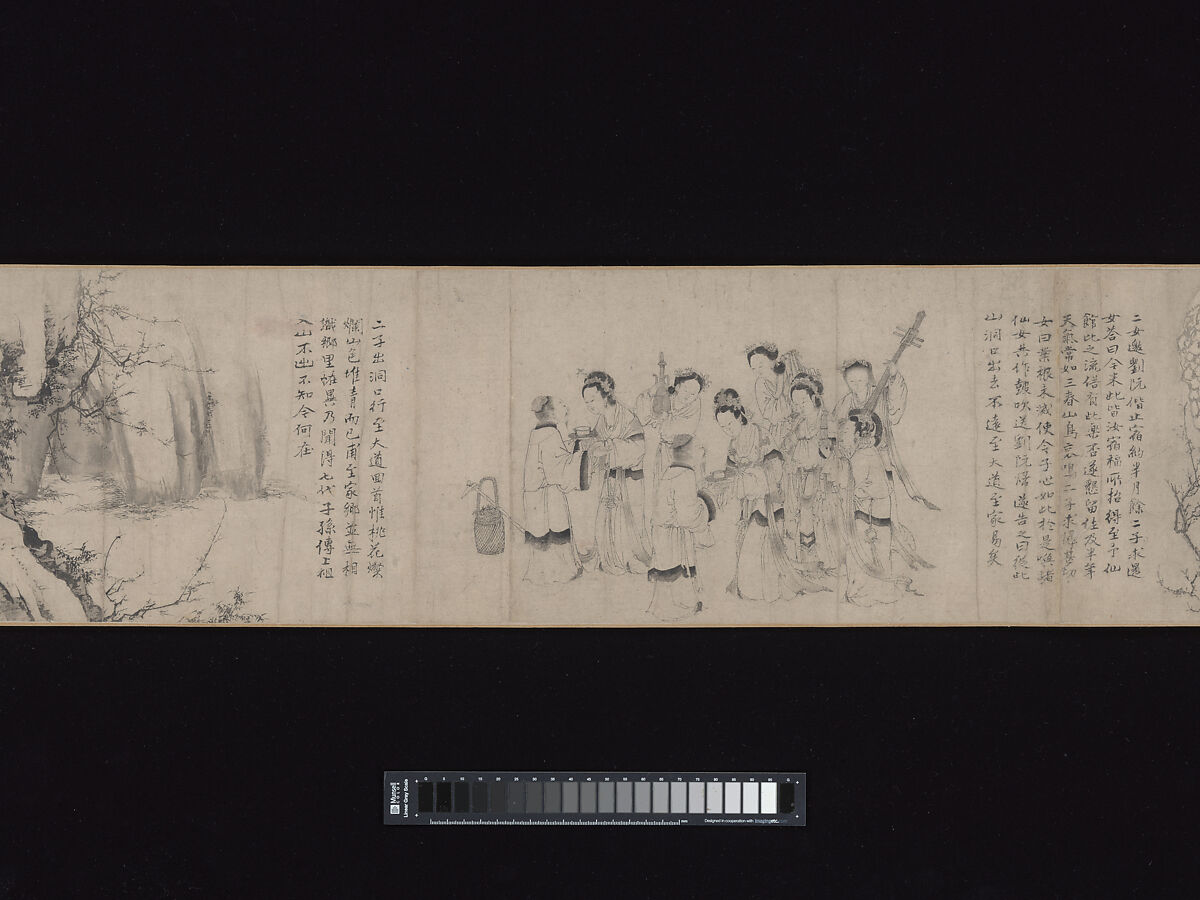 二女邀劉阮偕止宿約半月餘二子求還
女答曰今来此皆汝宿福所招得至予仙
館比之流俗有此樂否遂懇留住及半年
天氣常如三春山鳥哀鳴二子求歸甚切
女曰業根未滅使令子心如此於是喚諸
仙女共作鼓吹送劉阮歸遂告之曰從此
山洞口出去不遠至大道至家易矣
二子出洞口行至大道回首惟桃花
山色堆青而已甫至家鄉並無相
識鄉里怪異乃聞得七代子孫傳上祖
入山不出不知今何在
Munsell
COLOR
Linear Gray Scale
mm
Designed in cooperation with imagingetc.com